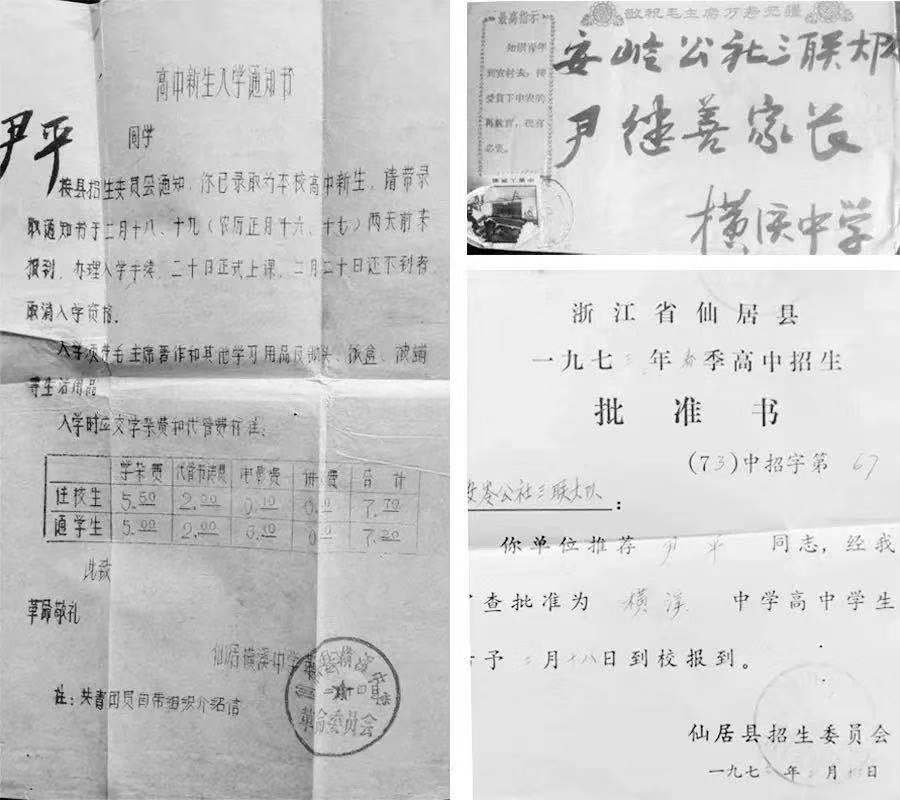 高中新生入学通知书
尹平
同学
根县招生委员会通知,你已录取为本校高中新生,请带录
取通知书于二月十八、十九(农历正月十六、十七)两天前来
报到,办理入学手续,二十日正式上课,二月二十日还不到者,
取消入学资格。
入学须带毛主席著作和其他学习用品及锄头、饭盒、
等生活用品
入学时应交学杂费和代管费标准:
学杂费 代管书讲费 电影费 费 合计
住校生 5.50 2.00 0.10 7.70
通学生 5.00 2.00 0.10 7.20
此致
革命敬礼
仙居横溪中学
革命委员会
注:共青团员自带组织介绍信
敬祝毛主席万寿无疆
最高指示
知识青年
到农村去,接
受贫下中农的
再教育,很有
必要。
安岭公社三联大队
尹继善家长
横溪中学
浙江省仙居县
一九七三年春季高中招生
批准书
(73)中招字第 67
安岭公社三联大队:
你单位推荐 尹平 同志,经我
查批准为 横溪 中学高中学生
予二月十八日到校报到。
仙居县招生委员会
一九七 年 月 日